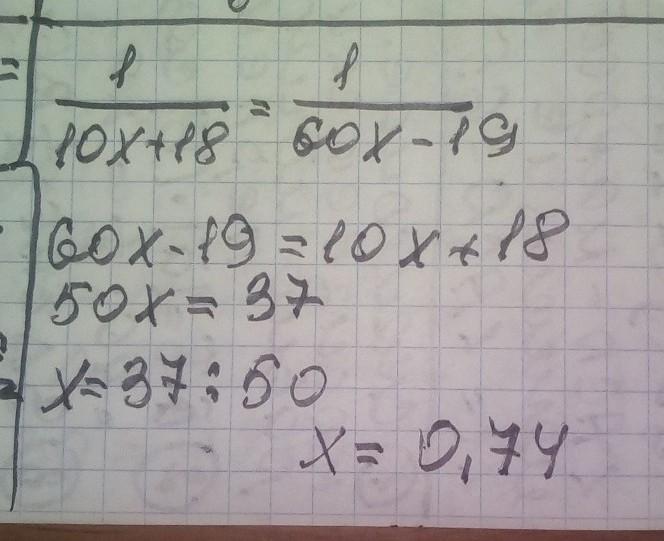 1/(10x+18) = 1/(60x-19)
60x-19=10x+18
50x=37
x=37:50
x=0,74